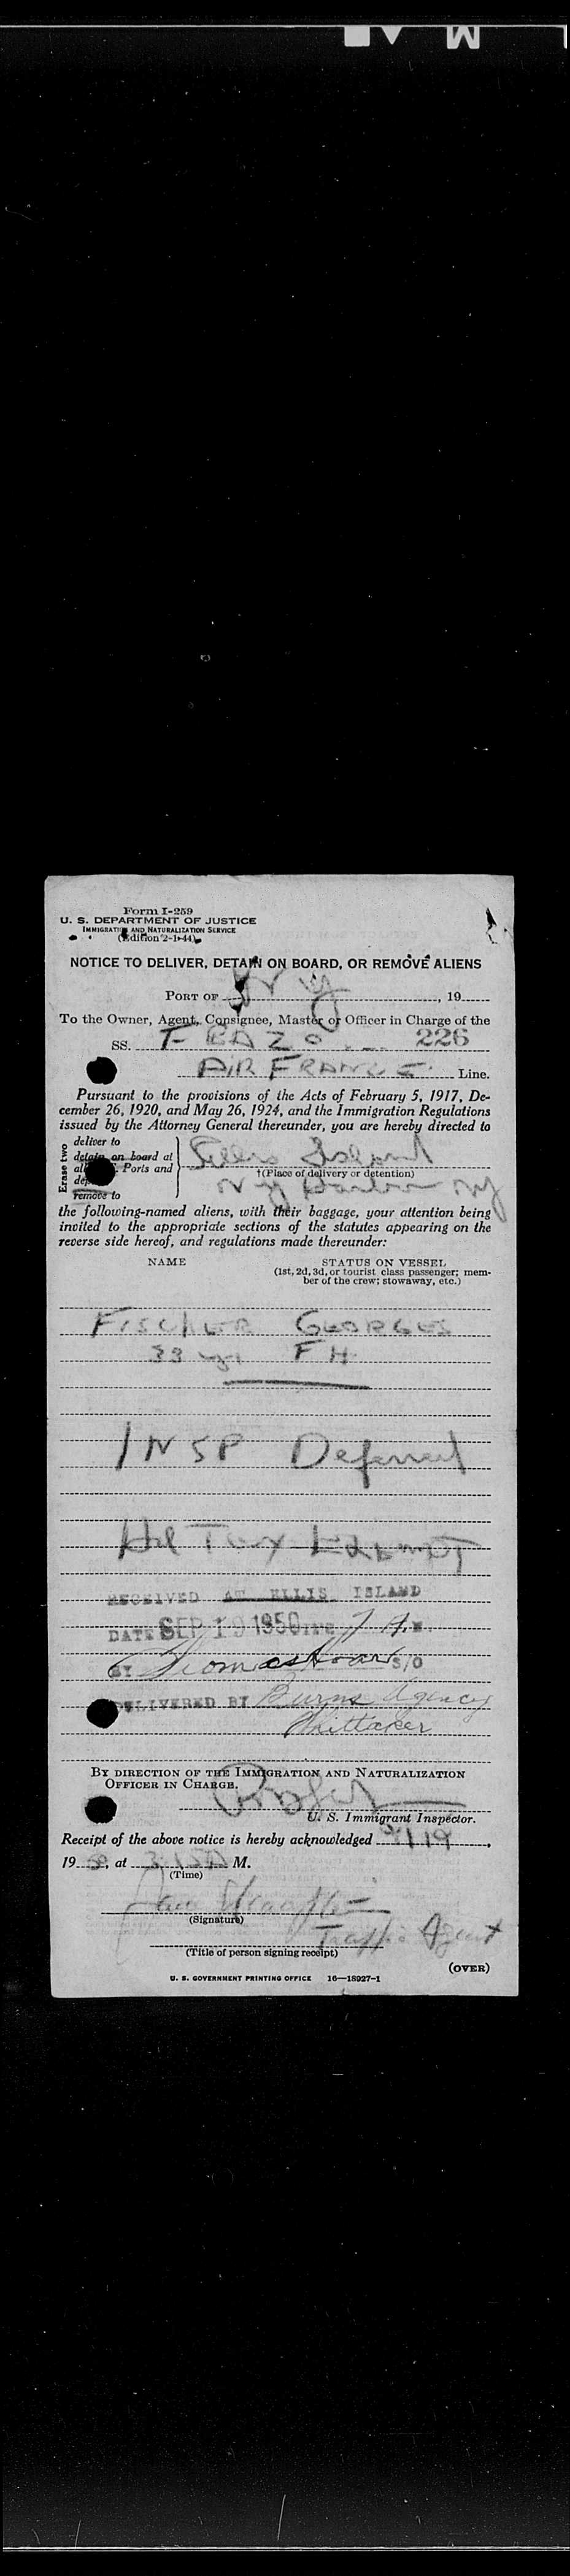 Form I-259
U. S. DEPARTMENT OF JUSTICE
IMMIGRATION AND NATURALIZATION SERVICE
(Edition 2-1-44)
NOTICE TO DELIVER, DETAIN ON BOARD, OR REMOVE ALIENS
PORT OF N Y, 19
To the Owner, Agent, Consignee, Master or Officer in Charge of the
SS. F BAZO 226
AIR FRANCE Line.
Pursuant to the provisions of the Acts of February 5, 1917, De-
cember 26, 1920, and May 26, 1924, and the Immigration Regulations
issued by the Attorney General thereunder, you are hereby directed to
Erase two
deliver to
detain on board at
all Ports and
remove to
Ellis Island
†(Place of delivery or detention)
N Y Harbor NY
the following-named aliens, with their baggage, your attention being
invited to the appropriate sections of the statutes appearing on the
reverse side hereof, and regulations made thereunder:
NAME STATUS ON VESSEL
(1st, 2d, 3d, or tourist class passenger; mem-
ber of the crew; stowaway, etc.)
FISCHER GEORGES
33 yrs F H
INSP Deferred
Hd Tax Exempt
RECEIVED AT ELLIS ISLAND
DATE SEP 19 1950 7 A M
BY S/O
DELIVERED BY Burns Agency
Whittaker
BY DIRECTION OF THE IMMIGRATION AND NATURALIZATION
OFFICER IN CHARGE.
U. S. Immigrant Inspector.
Receipt of the above notice is hereby acknowledged 9/19,
19 50, at M.
(Time)
(Signature)
Traffic Agent
(Title of person signing receipt)
(OVER)
U. S. GOVERNMENT PRINTING OFFICE 16—18927-1